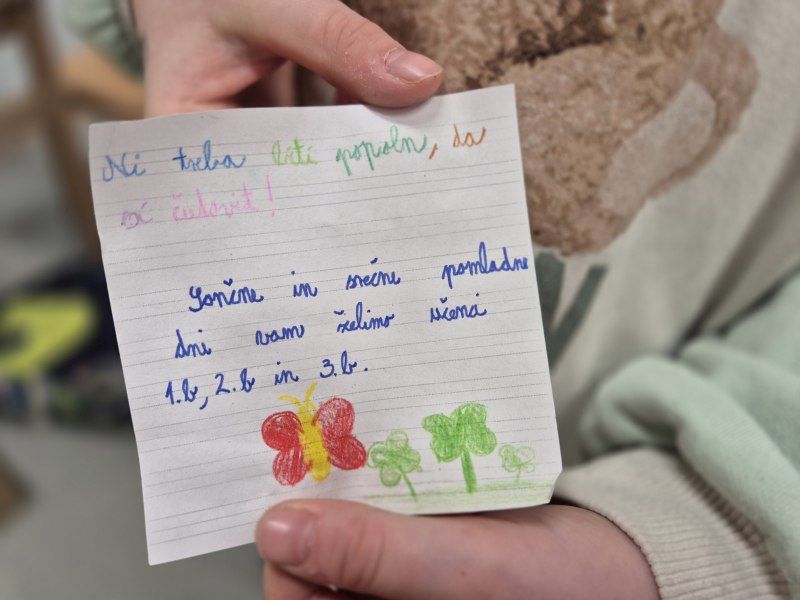 Ni treba biti popoln, da
si čudovit!
Sončne in srečne pomladne
dni vam želimo učenci
1.b, 2.b in 3.b.